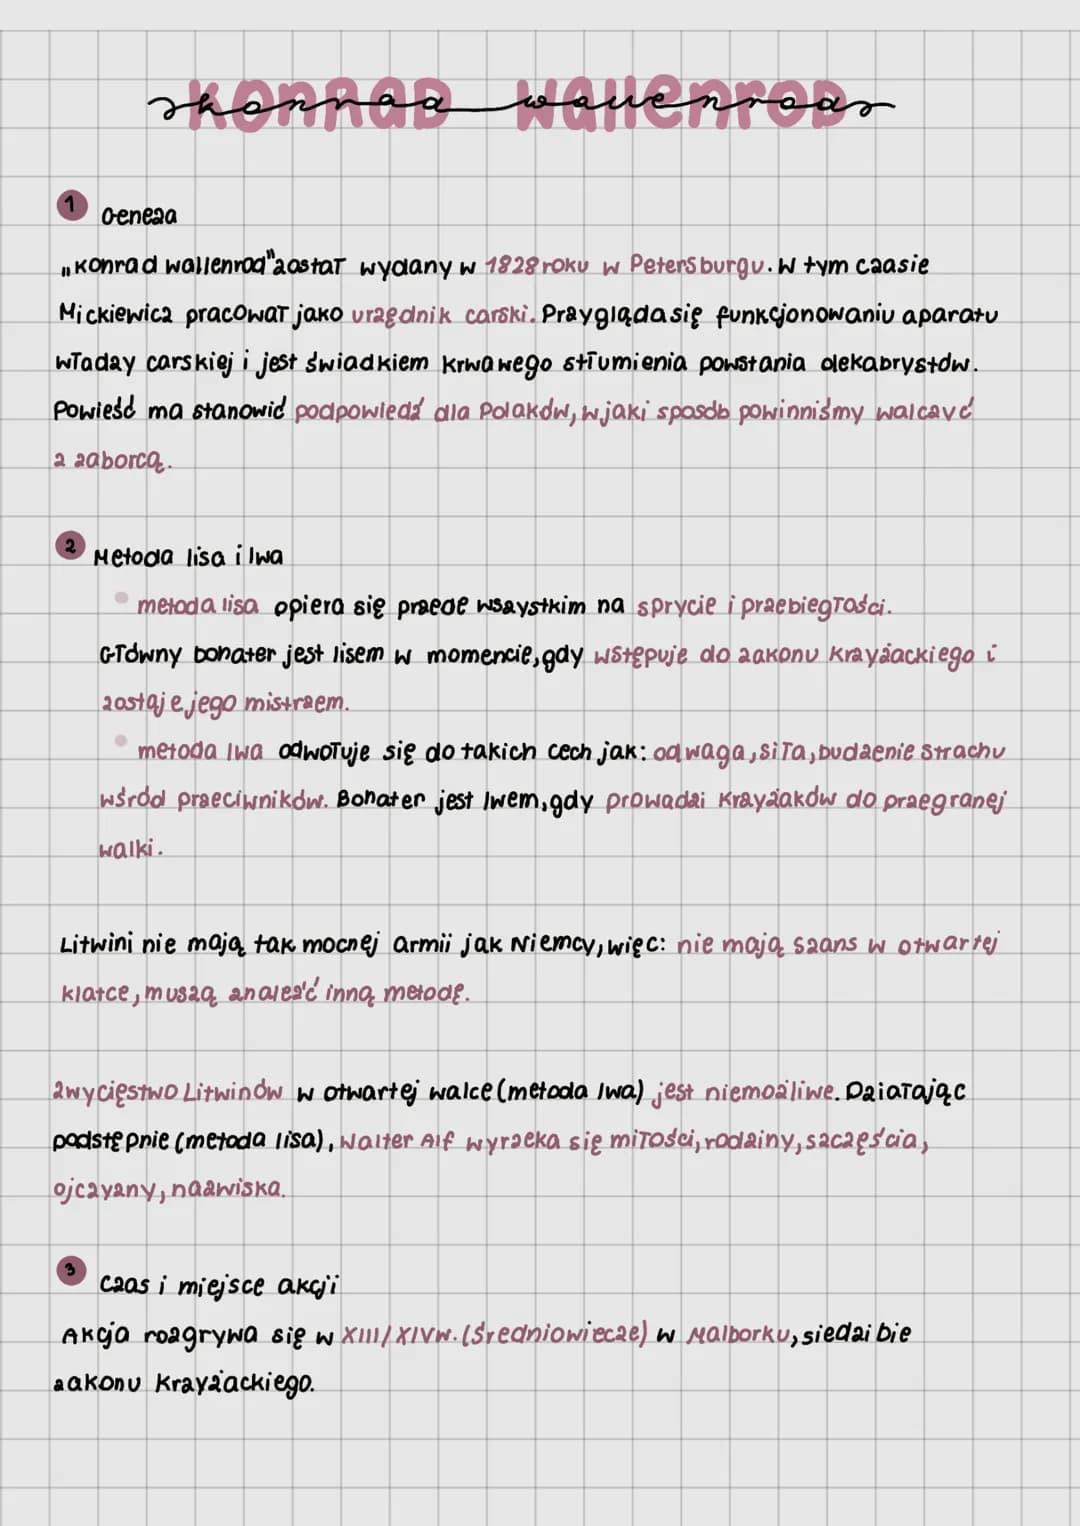 Konrad Wallenrod
1 Geneza
„Konrad Wallenrod" został wydany w 1828 roku w Petersburgu. W tym czasie
Mickiewicz pracował jako urzędnik carski. Przygląda się funkcjonowaniu aparatu
władzy carskiej i jest świadkiem krwawego stłumienia powstania dekabrystów.
Powieść ma stanowić podpowiedź dla Polaków, w jaki sposób powinniśmy walczyć
z zaborcą.
2 Metoda lisa i lwa
• metoda lisa opiera się przede wszystkim na sprycie i przebiegłości.
Główny bohater jest lisem w momencie, gdy wstępuje do zakonu Krzyżackiego i
zostaje jego mistrzem.
• metoda lwa odwołuje się do takich cech jak: odwaga, siła, budzenie strachu
wśród przeciwników. Bohater jest lwem, gdy prowadzi Krzyżaków do przegranej
walki.
Litwini nie mają tak mocnej armii jak Niemcy, więc: nie mają szans w otwartej
klatce, muszą znaleźć inną metodę.
Zwycięstwo Litwinów w otwartej walce (metoda lwa) jest niemożliwe. Działając
podstępnie (metoda lisa), Walter Alf wyrzeka się miłości, rodziny, szczęścia,
ojczyzny, nazwiska.
3 Czas i miejsce akcji
Akcja rozgrywa się w XIII/XIVw. (Średniowiecze) w Malborku, siedzibie
zakonu Krzyżackiego.